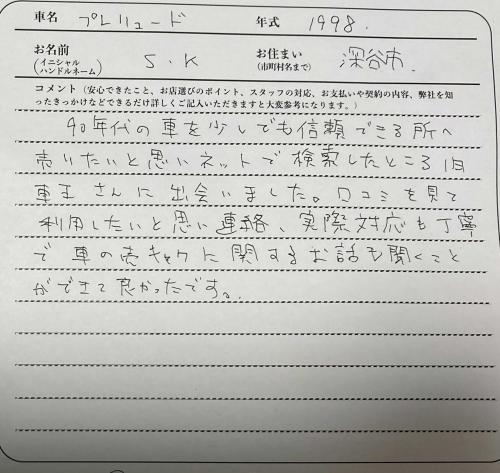 車名 プレリュード 年式 1998.
お名前 (イニシャル ハンドルネーム) S.K お住まい (市町村名まで) 深谷市.
コメント（安心できたこと、お店選びのポイント、スタッフの対応、お支払いや契約の内容、弊社を知
ったきっかけなどできるだけ詳しくご記入いただきますと大変参考になります。）
90年代の車を少しでも信頼できる所へ
売りたいと思いネットで検索したところ旧
車王さんに出会いました。口コミを見て
利用したいと思い連絡、実際対応も丁寧
で車の売キャクに関するお話も聞くこと
ができて良かったです。